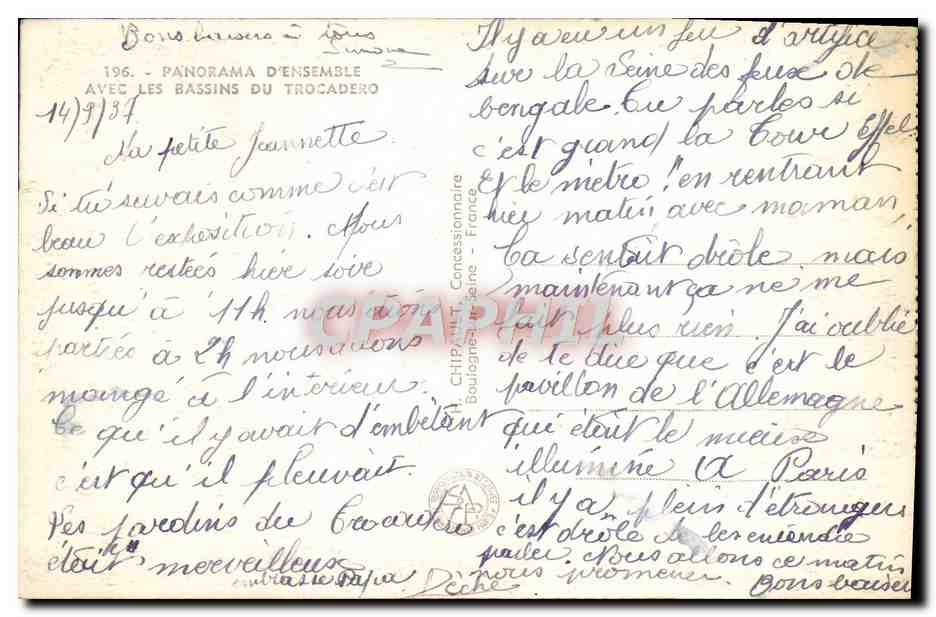 Bons baisers à tous
Simone
196. - PANORAMA D'ENSEMBLE
AVEC LES BASSINS DU TROCADERO
14/9/37
Ma petite Jeannette
Si tu savais comme c'est
beau l'exposition. Nous
sommes restées hier soir
jusqu'à 11h. nous étions
parties à 2h nous avons
mangé à l'intérieur.
Ce qu'il y avait d'embêtant
c'est qu'il pleuvait.
Les jardins du Trocadéro
était merveilleux
embrasse Papa Dèche
H. CHIPAULT, Concessionnaire
Boulogne-sur-Seine - France
CPAPHIL
Il y a eu un feu d'artifice
sur la Seine des feux de
bengale. Tu parles si
c'est grand la Tour Effel
Et le métro ! en rentrant
hier matin avec maman
Ca sentait drôle mais
maintenant ça ne me
fait plus rien. J'ai oublié
de te dire que c'est le
pavillon de l'Allemagne
qui était le mieux
illuminé A Paris
il y a plein d'étrangers
c'est drôle de les entendre
parler. Nous allons ce matin
nous promener.
Bons baisers